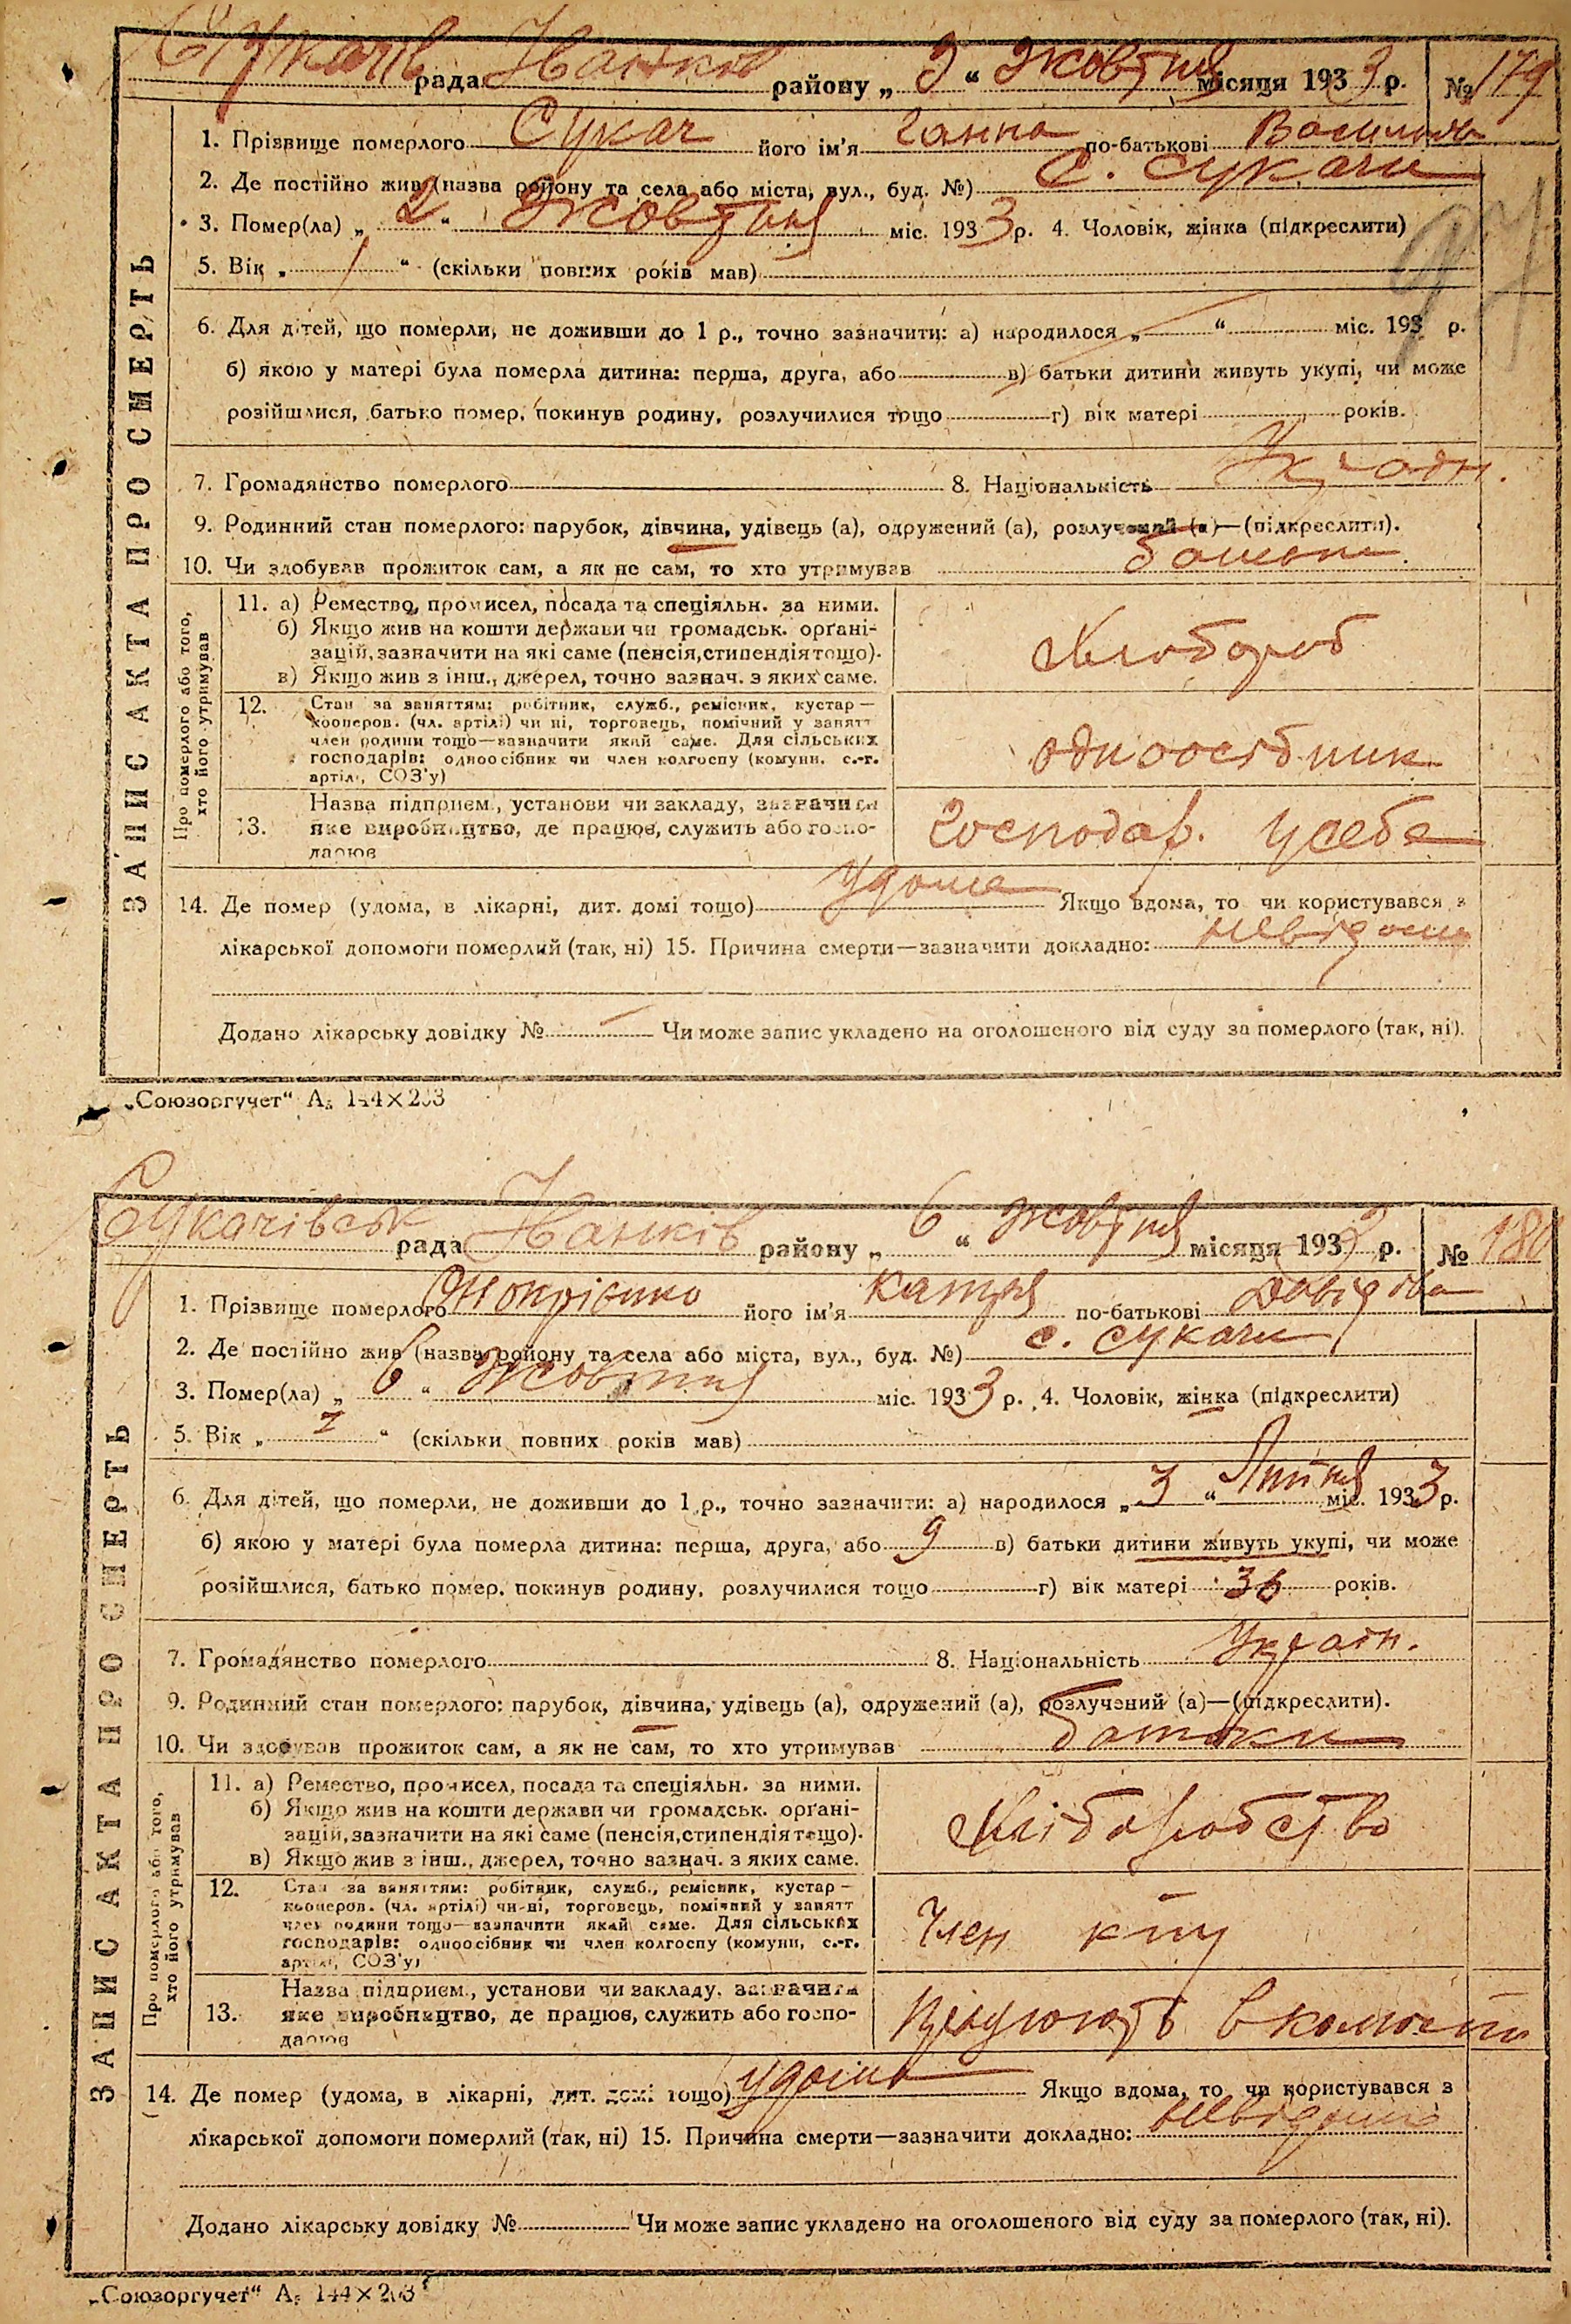 рада Іванків району „ 3 “ Жовтня місяця 1933 р. № 179
1. Прізвище померлого Сукач його ім’я Ганна по-батькові
2. Де постійно жив (назва району та села або міста, вул., буд. №) с. Сукачи
3. Помер(ла) „ 2 “ Жовтня міс. 1933 р. 4. Чоловік, жінка (підкреслити)
5. Вік „ 1 “ (скільки повних років мав)
97
6. Для дітей, що померли, не доживши до 1 р., точно зазначити: а) народилося „ “ міс. 193 р.
б) якою у матері була померла дитина: перша, друга, або в) батьки дитини живуть укупі, чи може
розійшлися, батько помер, покинув родину, розлучилися тощо г) вік матері років.
7. Громадянство померлого 8. Національність Україн.
9. Родинний стан померлого: парубок, дівчина, удівець (а), одружений (а), розлучений (а)—(підкреслити).
10. Чи здобував прожиток сам, а як не сам, то хто утримував
ЗАПИС АКТА ПРО СМЕРТЬ
Про померлого або того,
хто його утримував
11. а) Ремество, промисел, посада та спеціяльн. за ними.
б) Якщо жив на кошти держави чи громадськ. орґані-
зацій, зазначити на які саме (пенсія, стипендія тощо).
в) Якщо жив з інш., джерел, точно зазнач. з яких саме.
Хлібороб
12. Стан за заняттям: робітник, служб., ремісник, кустар—
кооперов. (чл. артілі) чи ні, торговець, помічний у занятт
член родини тощо—зазначити який саме. Для сільських
господарів: одноосібник чи член колгоспу (комуни, с.-г.
артілі, СОЗ’у)
одноосібник
Назва підприєм., установи чи закладу, зазначити
13. яке виробництво, де працює, служить або госпо-
дарює
Господар. у себе
14. Де помер (удома, в лікарні, дит. домі тощо) удома Якщо вдома, то чи користувався з
лікарської допомоги померлий (так, ні) 15. Причина смерти—зазначити докладно: невідома
Додано лікарську довідку № — Чи може запис укладено на оголошеного від суду за померлого (так, ні).
„Союзоргучет“ А₅ 144×203
Сукачівськ рада Іванків району „ 6 “ Жовтня місяця 1933 р. № 180
1. Прізвище померлого його ім’я Катря по-батькові Давідова
2. Де постійно жив (назва району та села або міста, вул., буд. №) с. Сукачи
3. Помер(ла) „ 6 “ Жовтня міс. 1933 р. 4. Чоловік, жінка (підкреслити)
5. Вік „ “ (скільки повних років мав)
6. Для дітей, що померли, не доживши до 1 р., точно зазначити: а) народилося „ 3 “ Липня міс. 1933 р.
б) якою у матері була померла дитина: перша, друга, або 9 в) батьки дитини живуть укупі, чи може
розійшлися, батько помер, покинув родину, розлучилися тощо г) вік матері 36 років.
7. Громадянство померлого 8. Національність Україн.
9. Родинний стан померлого: парубок, дівчина, удівець (а), одружений (а), розлучений (а)—(підкреслити).
10. Чи здобував прожиток сам, а як не сам, то хто утримував батьки
ЗАПИС АКТА ПРО СМЕРТЬ
Про померлого або того,
хто його утримував
11. а) Ремество, промисел, посада та спеціяльн. за ними.
б) Якщо жив на кошти держави чи громадськ. орґані-
зацій, зазначити на які саме (пенсія, стипендія тощо).
в) Якщо жив з інш., джерел, точно зазнач. з яких саме.
Хліборобство
12. Стан за заняттям: робітник, служб., ремісник, кустар—
кооперов. (чл. артілі) чи ні, торговець, помічний у занятт
член родини тощо—зазначити який саме. Для сільських
господарів: одноосібник чи член колгоспу (комуни, с.-г.
артілі, СОЗ’у)
Член
Назва підприєм., установи чи закладу, зазначити
13. яке виробництво, де працює, служить або госпо-
дарює
Працюють в колгоспі
14. Де помер (удома, в лікарні, дит. домі тощо) удома Якщо вдома, то чи користувався з
лікарської допомоги померлий (так, ні) 15. Причина смерти—зазначити докладно: невідома
Додано лікарську довідку № Чи може запис укладено на оголошеного від суду за померлого (так, ні).
„Союзоргучет“ А₅ 144×203